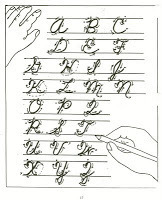 A B C
D E F
G H I J
K L M N
O P Q
R S T
U V W
X Y Z